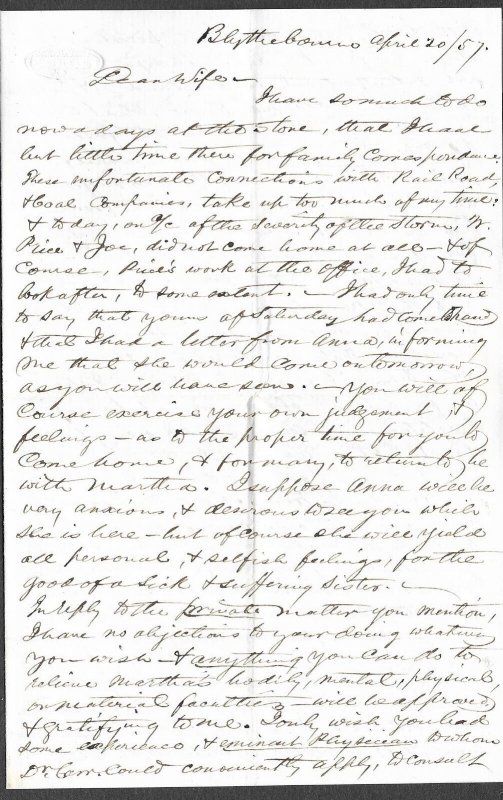 Blythebourne April 20/57.
Dear Wife
I have so much to do
now a days at the store, that I have
but little time there for family correspondence.
These unfortunate connections with Rail Road
& Coal Companies, take up too much of my time;
& today, on a/c of the severity of the Storm, W.
Price & Joe, did not come home at all - & of
course, Price's work at the office, I had to
look after, to some extent. - I had only time
to say that yours of Saturday had come to hand
& that I had a letter from Anna, informing
me that she would come on tomorrow,
as you will have seen. - You will of
course exercise your own judgement, &
feelings - as to the proper time for you to
come home, & for Mary, to return to be
with Martha. I suppose Anna will be
very anxious, & desirous to see you while
she is here - but of course she will yield
all personal, & selfish feelings, for the
good of a sick & suffering sister. -
In reply to the private matter you mention,
I have no objections to your doing whatever
you wish - & anything you can do to
relieve Martha's bodily, mental, physical
or material faculties - will be approved
& gratifying to me. I only wish you had
some experience, & eminent Physician to whom
Dr. Carr, could conveniently apply, to consult